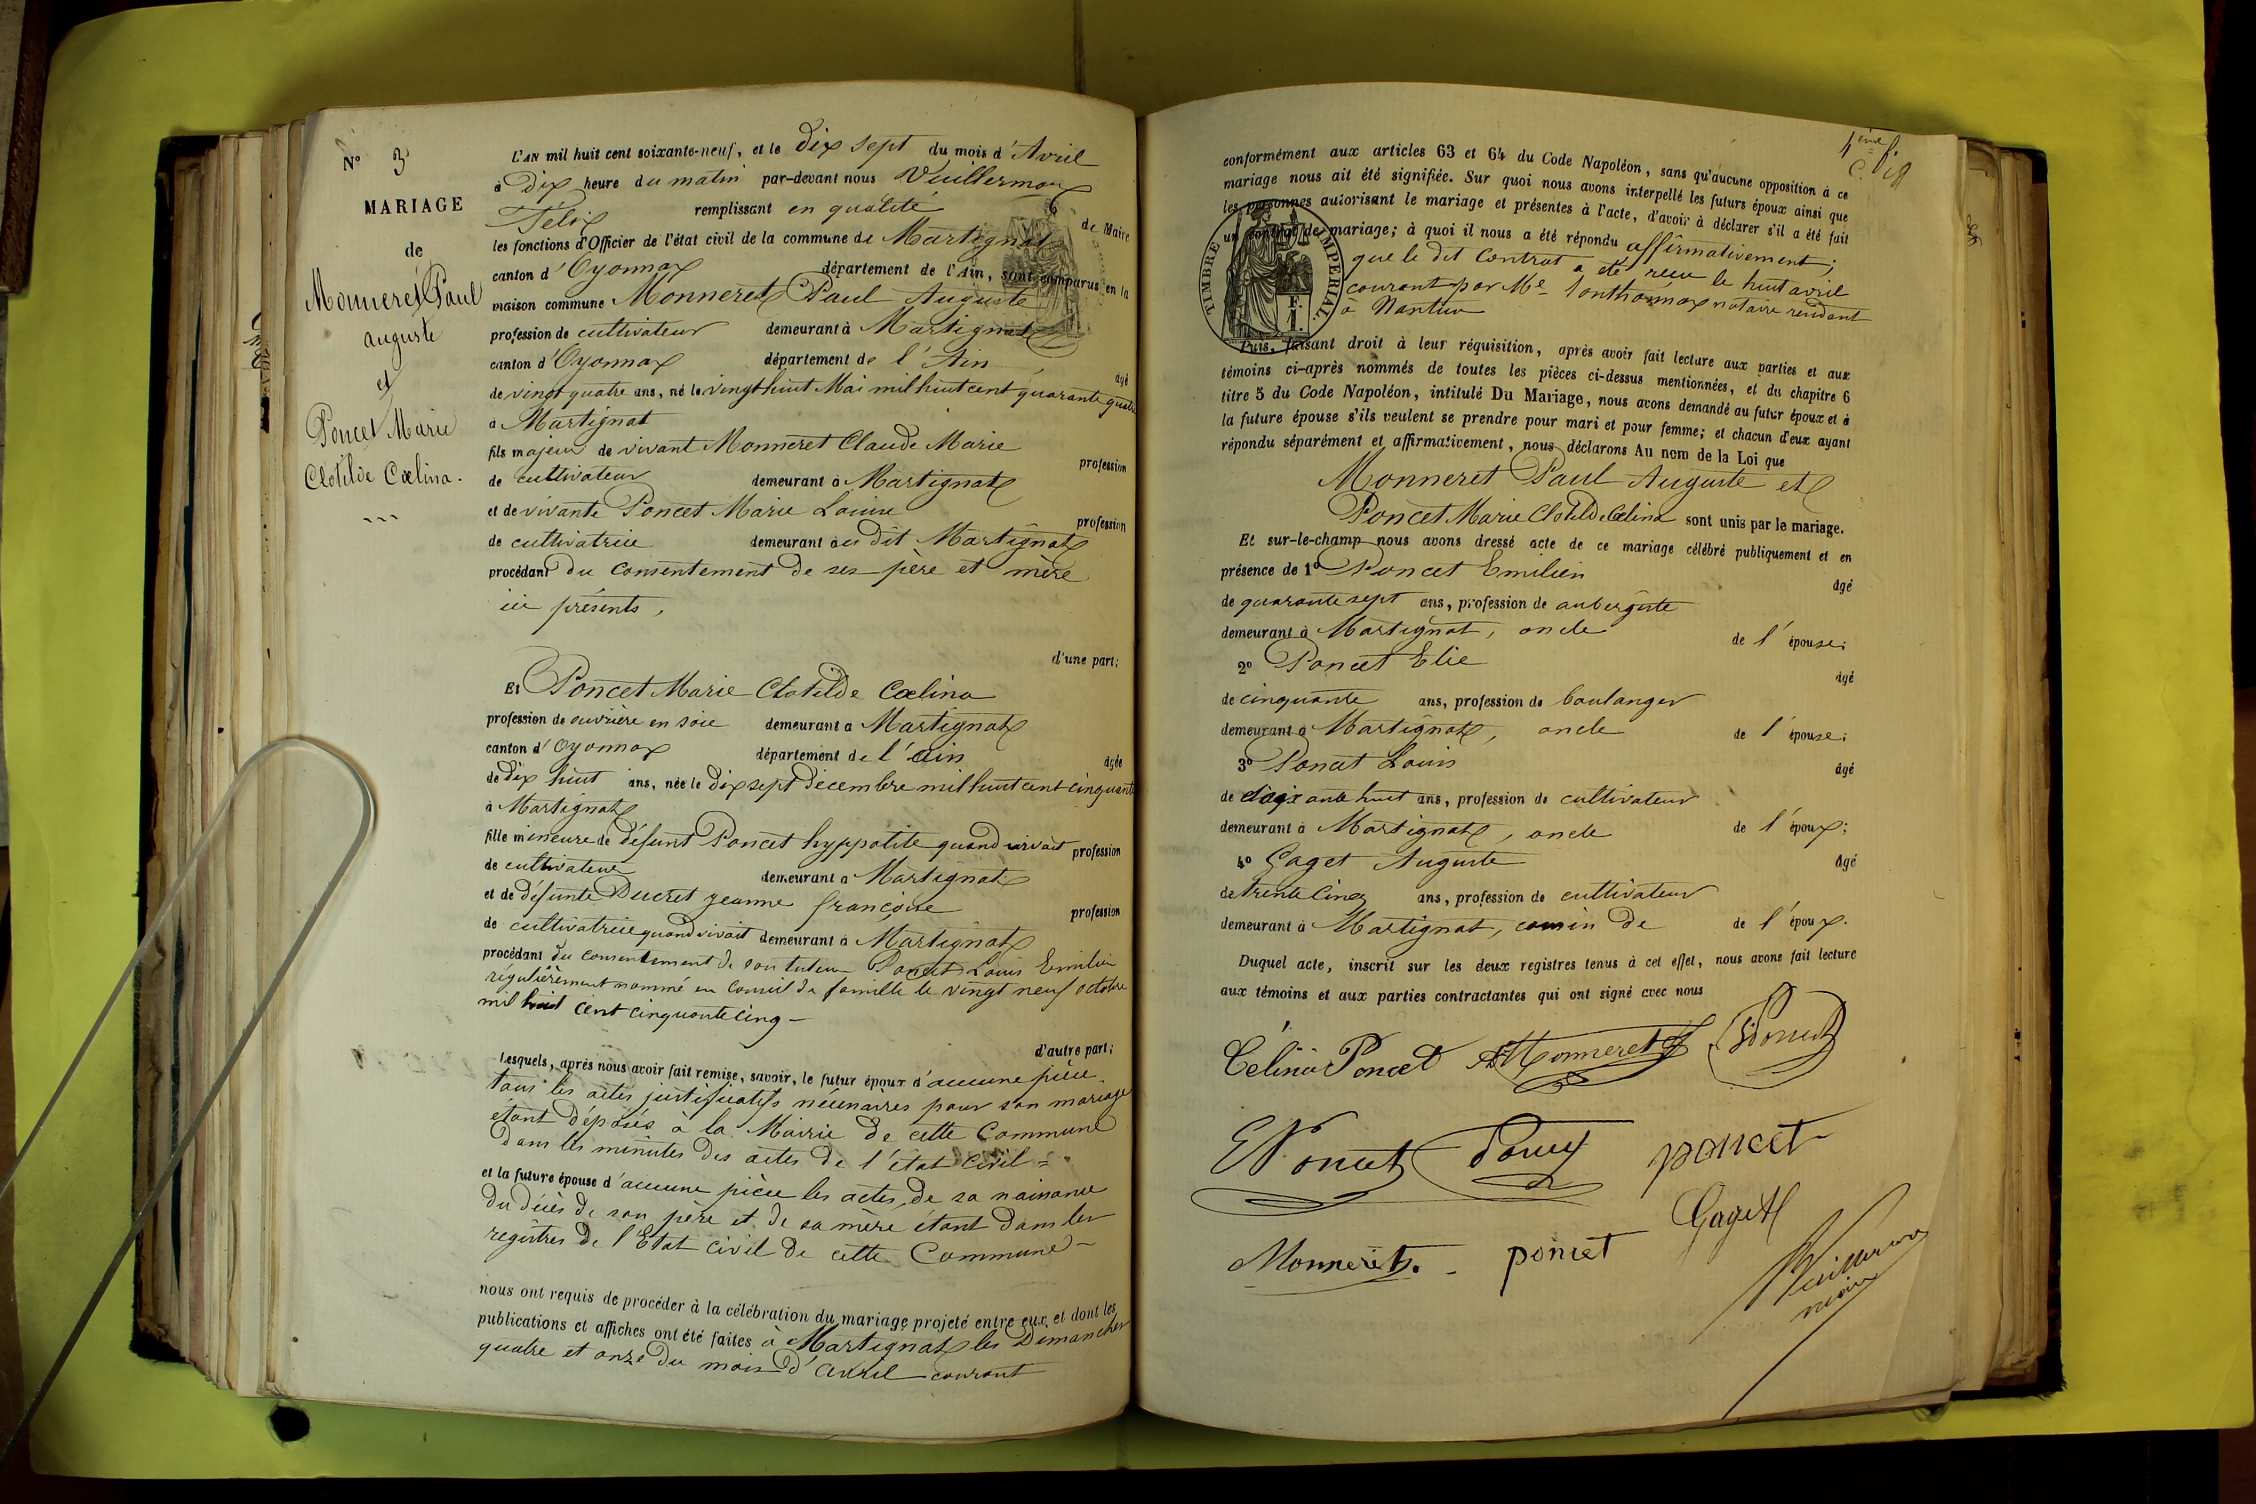 N° 3
MARIAGE
de
Monneret Paul
auguste
et
Poncet Marie
Clotilde Cœlina.
L'AN mil huit cent soixante-neuf, et le Dix sept du mois d'Avril
à Dix heure du matin par-devant nous Vuillermoz
Félix remplissant en qualité de Maire
les fonctions d'Officier de l'état civil de la commune de Martignat
canton d'Oyonnax département de l'Ain, sont comparus en la
maison commune Monneret Paul Auguste
profession de cultivateur demeurant à Martignat
canton d'Oyonnax département de l'Ain âgé
de vingt quatre ans, né le vingt huit Mai mil huit cent quarante quatre
à Martignat
fils majeur de vivant Monneret Claude Marie profession
de cultivateur demeurant à Martignat
et de vivante Poncet Marie Louise profession
de cultivatrice demeurant au dit Martignat
procédant du consentement de ses père et mère
ici présents,
d'une part;
Et Poncet Marie Clotilde Cœlina
profession de ouvrière en soie demeurant à Martignat
canton d'Oyonnax département de l'ain âgée
de dix huit ans, née le dix sept décembre mil huit cent cinquante
à Martignat
fille mineure de défunt Poncet hyppolite quand vivait profession
de cultivateur demeurant à Martignat
et de défunte Ducret jeanne françoise profession
de cultivatrice quand vivait demeurant à Martignat
procédant du consentement de son tuteur Poncet Louis Emilien
régulièrement nommé en conseil de famille le vingt neuf octobre
mil huit cent cinquante cinq –
d'autre part;
Lesquels, après nous avoir fait remise, savoir, le futur époux d'aucune pièce
tous les actes justificatifs nécessaires pour son mariage
étant déposés à la Mairie de cette Commune
dans les minutes des actes de l'état civil =
et la future épouse d'aucune pièce les actes de sa naissance
du décès de son père et de sa mère étant dans les
registres de l'Etat civil de cette Commune –
nous ont requis de procéder à la célébration du mariage projeté entre eux, et dont les
publications et affiches ont été faites à Martignat les Dimanches
quatre et onze du mois d'avril courant
4ème f.
conformément aux articles 63 et 64 du Code Napoléon, sans qu'aucune opposition à ce
mariage nous ait été signifiée. Sur quoi nous avons interpellé les futurs époux ainsi que
les personnes autorisant le mariage et présentes à l'acte, d'avoir à déclarer s'il a été fait
un contrat de mariage; à quoi il nous a été répondu affirmativement;
que le dit Contrat a été reçu le huit avril
courant par Me Tonthomax notaire résidant
à Nantua
TIMBRE IMPERIAL.
Puis, faisant droit à leur réquisition, après avoir fait lecture aux parties et aux
témoins ci-après nommés de toutes les pièces ci-dessus mentionnées, et du chapitre 6
titre 5 du Code Napoléon, intitulé Du Mariage, nous avons demandé au futur époux et à
la future épouse s'ils veulent se prendre pour mari et pour femme; et chacun d'eux ayant
répondu séparément et affirmativement, nous déclarons Au nom de la Loi que
Monneret Paul Auguste et
Poncet Marie Clotilde Cœlina sont unis par le mariage.
Et sur-le-champ nous avons dressé acte de ce mariage célébré publiquement et en
présence de 1° Poncet Emilien âgé
de quarante sept ans, profession de aubergiste
demeurant à Martignat, oncle de l'épouse;
2° Poncet Elie âgé
de cinquante ans, profession de boulanger
demeurant à Martignat, oncle de l'épouse;
3° Poncet Louis âgé
de soixante huit ans, profession de cultivateur
demeurant à Martignat, oncle de l'époux;
4° Gaget Auguste âgé
de trente Cinq ans, profession de cultivateur
demeurant à Martignat, cousin de de l'époux.
Duquel acte, inscrit sur les deux registres tenus à cet effet, nous avons fait lecture
aux témoins et aux parties contractantes qui ont signé avec nous
Célina Poncet Monneret Poncet
E Poncet Poncet poncet
Gaget
Monneret. poncet
Vuillermoz
maire